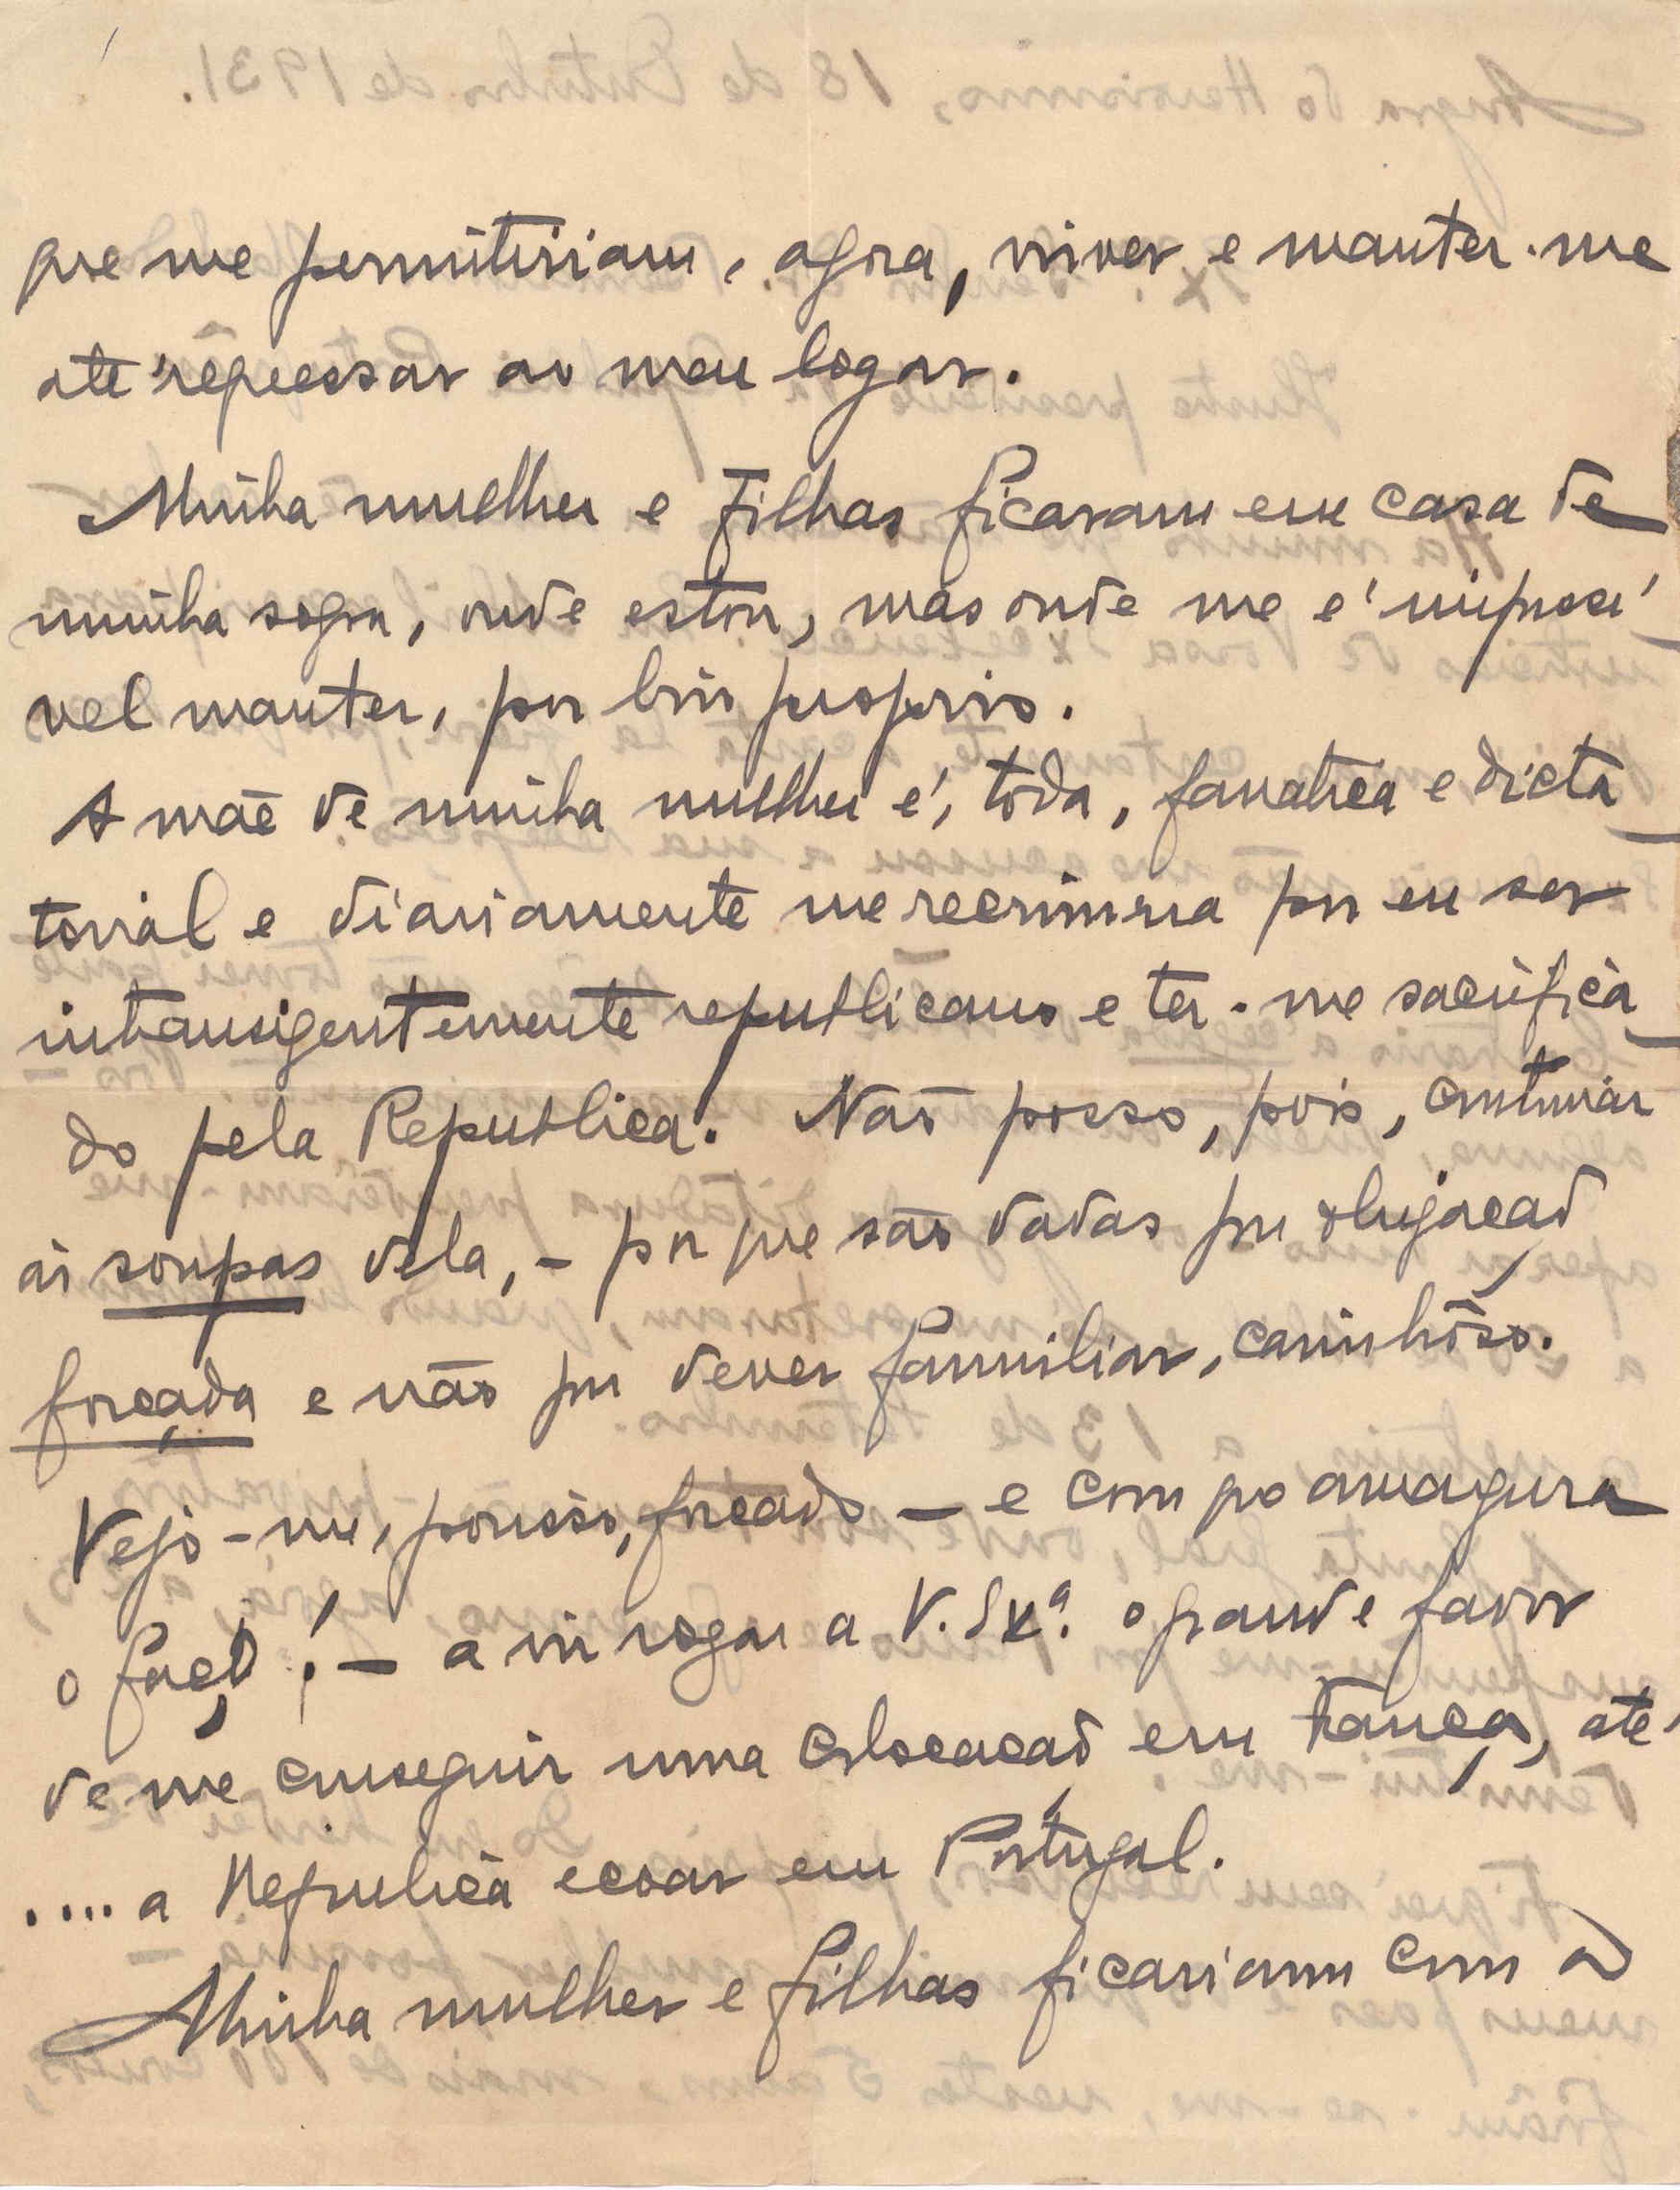 que me permitiriam, agora, viver e manter-me
até regressar ao meu logar.
Minha mulher e filhas ficaram em casa de
minha sogra, onde estou, mas onde me é impossi-
vel manter, por brio proprio.
A mãe de minha mulher é, toda, fanatica e dicta-
torial e diariamente me recrimina por eu ser
intransigentemente republicano e ter-me sacrifica-
do pela Republica. Não posso, pois, continuar
ás soupas dela, - por que são dadas por obrigação
forçada e não por dever familiar, carinhôso.
Vejo-me, porisso, forçado — e com que amagura
o faço! — a vir rogar a V. Exª. o grande favor
de me conseguir uma colocação em França, até
.... a Republica ecoar em Portugal.
Minha mulher e filhas ficariam com a